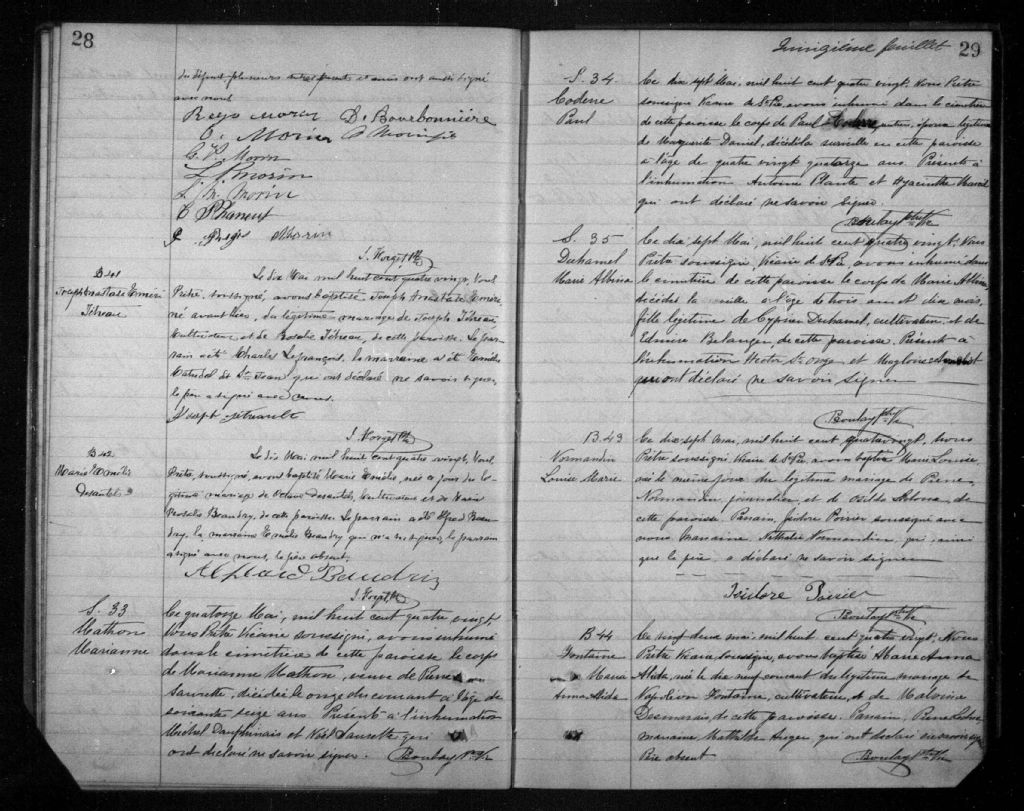 28
du défunt plusieurs autres parents et amis ont aussi signé
avec nous
Regis Morin D. Bourbonnière
Morin
G. P. Morin
L. J. Morin
L. M. Morin
Phaneuf
Regis Morin
J. Forget Ptr
B 41
Joseph Anastase
Tétreau
Le dix Mai mil huit cent quatre vingt, Nous
Prêtre, soussigné avons baptisé Joseph Anastase
né avant hier, du légitime mariage de Joseph Tétreau,
Cultivateur et de Rosalie Tétreau, de cette paroisse. Le par-
rain a été Charles Lefrançois, la marraine a été Emélie
de St Jean qui ont déclaré ne savoir signer,
le père a signé avec nous.
Joseph
J. Forget Ptr
B 42
Marie Emélie
Desautels
Le dix Mai mil huit cent quatre vingt, Nous,
Prêtre, soussigné, avons baptisé Marie Emélie, née ce jour du lé-
gitime mariage de Octave Desautels, Cultivateur et de Marie
Rosalie Beaudry, de cette paroisse. Le parrain a été Alfred Beau-
dry, la marraine Emélie Beaudry qui n'a su signer, le parrain
a signé avec nous, le père absent.
Beaudry
J. Forget Ptr
S. 33
Mathon
Marianne
Ce quatorze Mai, mil huit cent quatre vingt
Nous Prêtre Vicaire soussigné, avons inhumé
dans le cimetière de cette paroisse le corps
de Marianne Mathon, veuve de Pierre
décédée le onze du courant à l'âge de
soixante seize ans Présents à l'inhumation
Michel Dauphinais et qui
ont déclaré ne savoir signer. Boulay Ptr Vic
Quinzième feuillet 29
S. 34
Coderre
Paul
Ce dix sept Mai, mil huit cent quatre vingt. Nous Prêtre
soussigné Vicaire de St Pie, avons inhumé dans le cimetière
de cette paroisse le corps de Paul Coderre époux légitime
de Marguerite Daniel, décédé la surveille en cette paroisse
à l'âge de quatre vingt quatorze ans Présents à
l'inhumation Antoine Plante et Hyacinthe
qui ont déclaré ne savoir signer.
Boulay Ptr Vic
S. 35
Duhamel
Marie Albina
Ce dix sept Mai, mil huit cent quatre vingt. Nous
Prêtre soussigné, Vicaire de St Pie, avons inhumé dans
le cimetière de cette paroisse le corps de Marie Albina,
décédée la veille à l'âge de trois ans et dix mois,
fille légitime de Cyprien Duhamel, cultivateur, et de
Edmire Belanger de cette paroisse. Présents à
l'inhumation Hector St Onge et
qui ont déclaré ne savoir signer
Boulay Ptr Vic
B. 43
Normandin
Louise Marie
Ce dix sept Mai, mil huit cent quatre vingt, Nous
Prêtre soussigné, Vicaire de St Pie, avons baptisé Marie Louise,
née le même jour du légitime mariage de Pierre
Normandin, journalier et de de
cette paroisse. Parrain, Isidore Poirier soussigné avec
nous Marraine Nathalie Normandin, qui ainsi
que le père a déclaré ne savoir signer
Isidore Poirier
Boulay Ptr Vic
B 44
Fontaine
Maria
Anna Alida
Ce neuf deux mai mil huit cent quatre vingt, Nous
Prêtre Vicaire soussigné, avons baptisé Marie Anna
Alida, née le dix neuf courant du légitime mariage de
Napoléon Fontaine, cultivateur, et de Malvina
Desmarais, de cette paroisse. Parrain, Pierre
marraine Mathilde Auger qui ont déclaré ne savoir signer
Père absent Boulay Ptr Vic